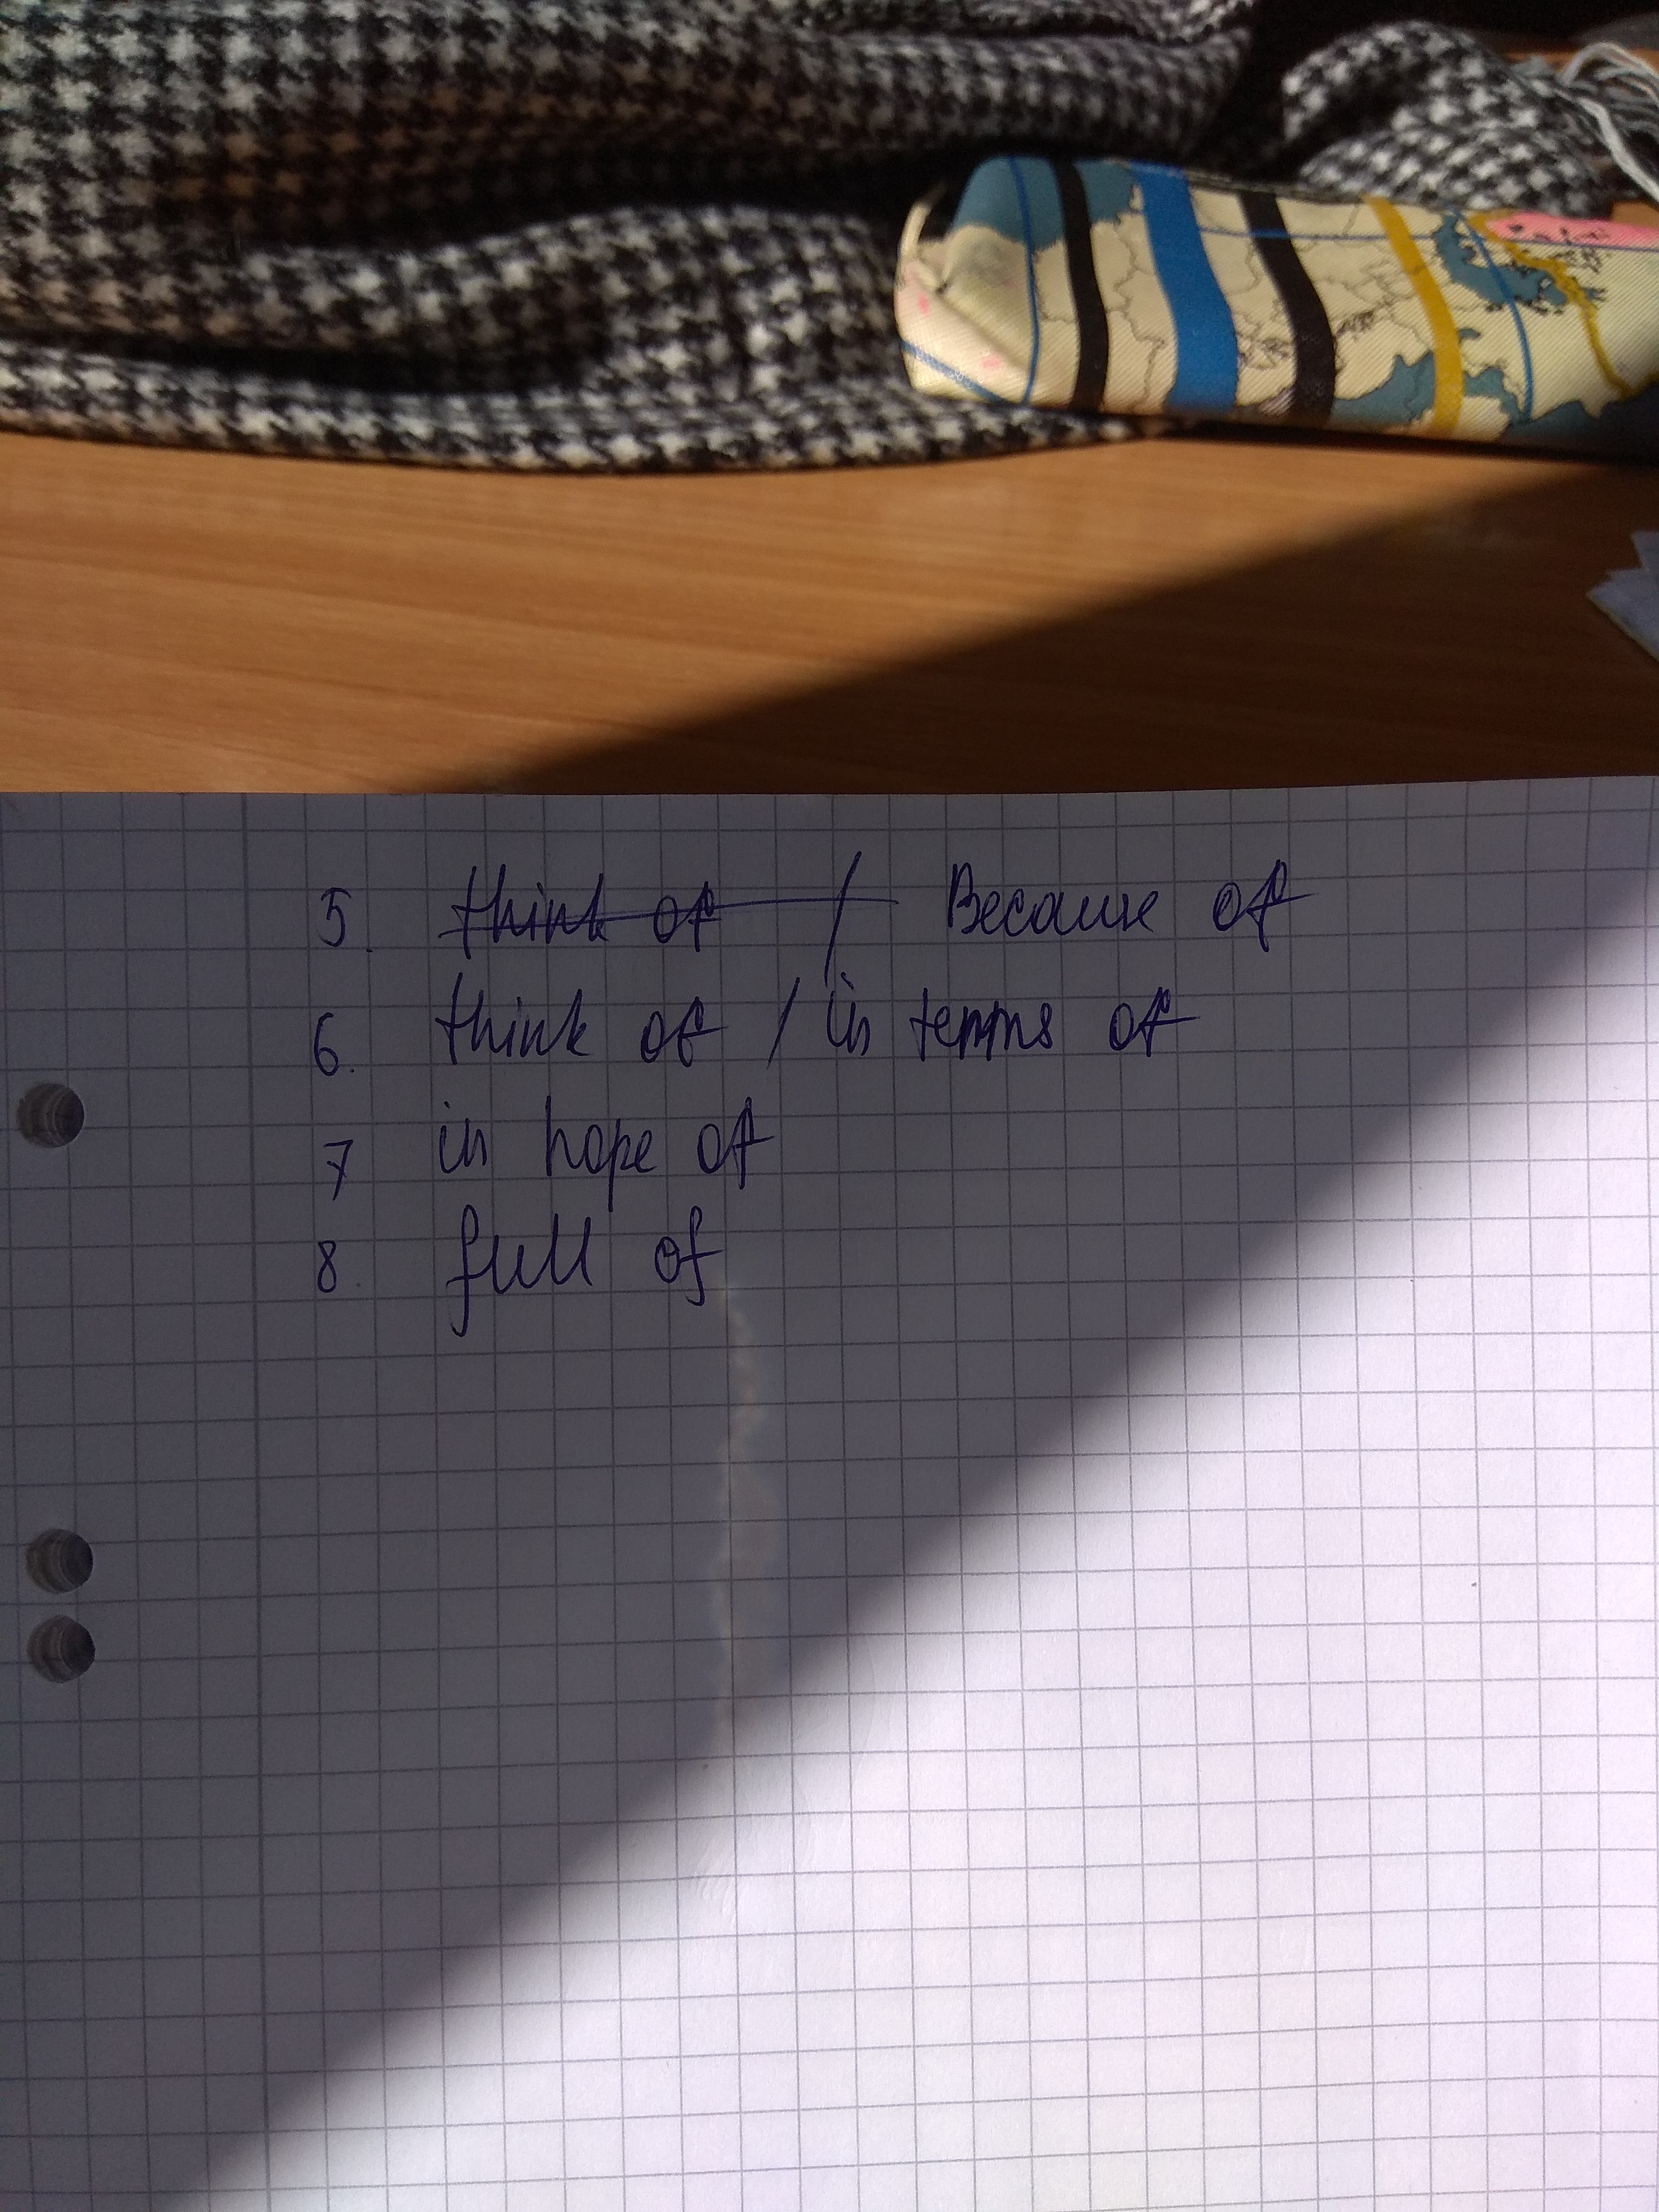 5. think of / Because of
6. think of / in terms of
7 in hope of
8 full of